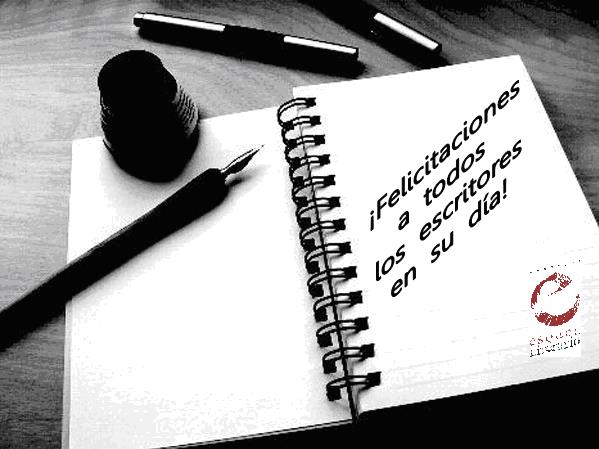 ¡Felicitaciones
a todos
los escritores
en su día!
literario